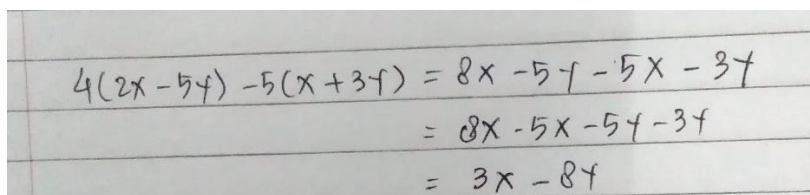 4(2x-5y) -5(x+3y) = 8x -5y -5x - 3y
= 8x -5x -5y -3y
= 3x - 8y